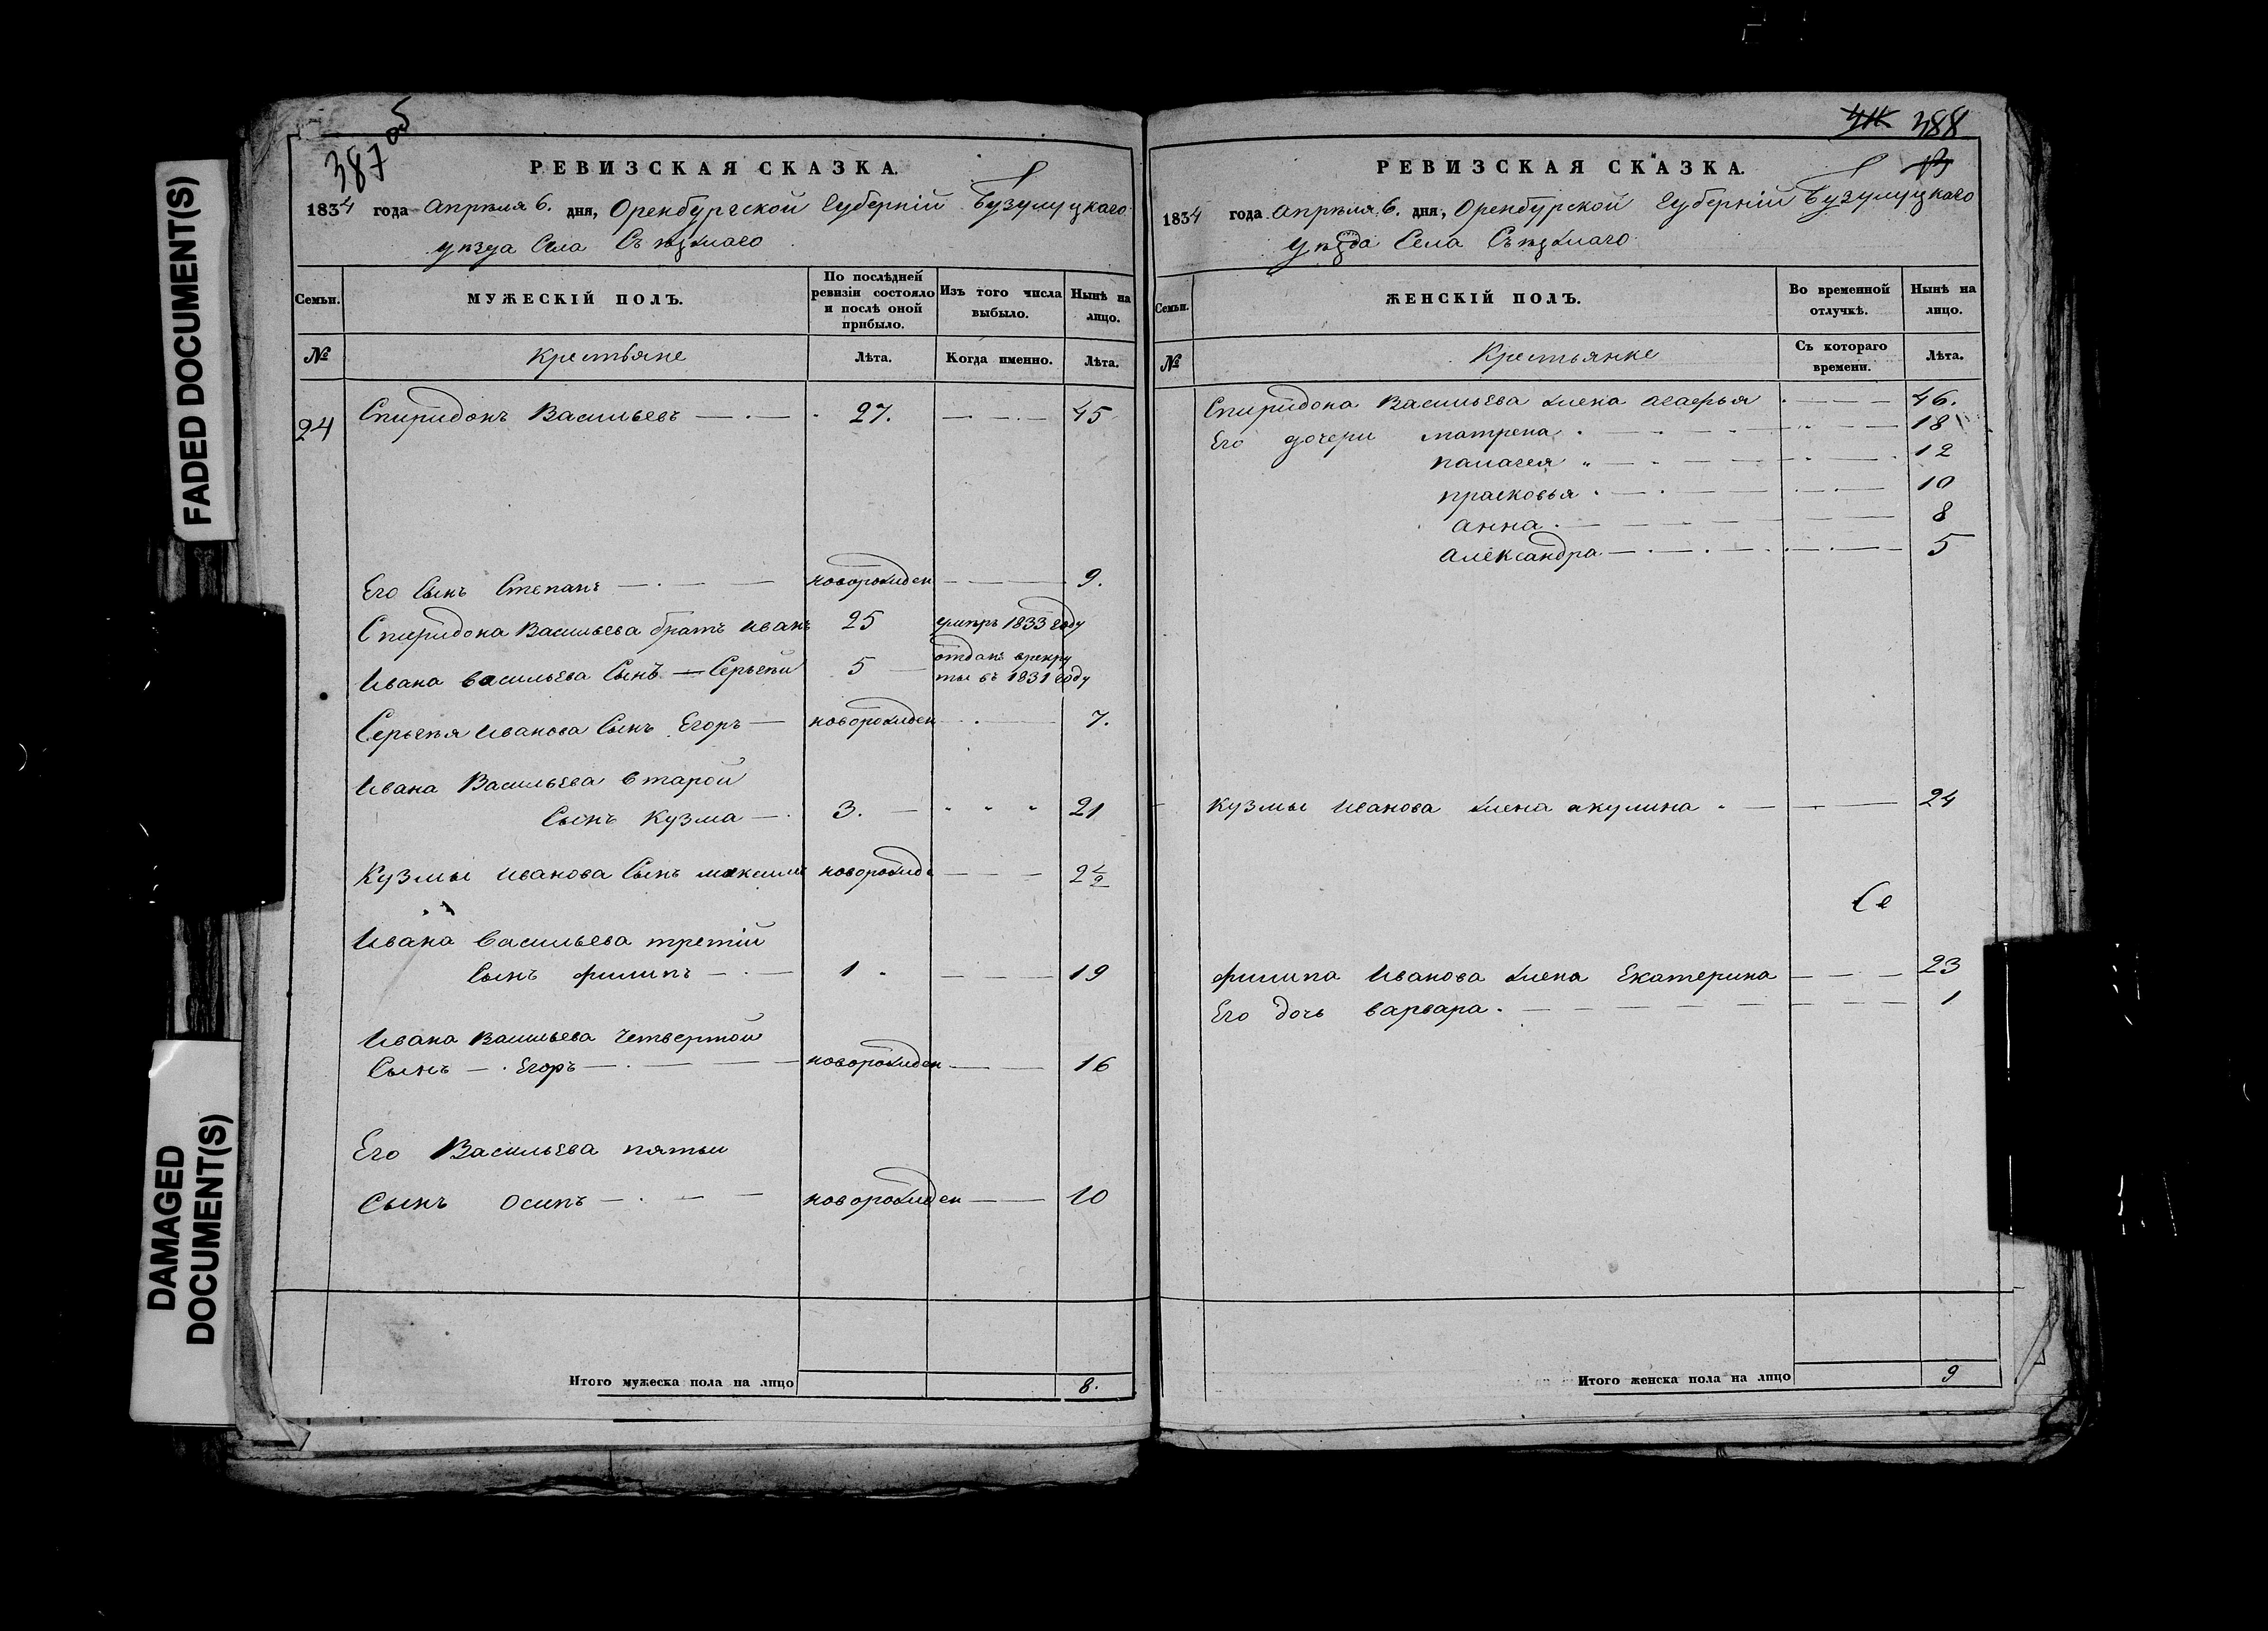 FADED DOCUMENT(S)
DAMAGED
DOCUMENT(S)
387 об
РЕВИЗСКАЯ СКАЗКА.
1834 года Апрѣля 6. дня, Оренбургской Губерніи Бузулуцкаго
уѣзда Села Съѣзжаго
Семьи.
МУЖЕСКІЙ ПОЛЪ.
По послѣдней
ревизіи состояло
и послѣ оной
прибыло.
Изъ того числа
выбыло.
Нынѣ на
лицо.
№
Крестьяне
Лѣта.
Когда именно.
Лѣта.
24 Спиридонъ Васильевъ 27. 45
Его Сынъ Степанъ новорожден 9.
Спиридона Васильева братъ иванъ 25 умиръ 1833 году
Ивана васильева Сынъ Серьгѣй 5 отданъ врекру
ты въ 1831 году
Серьгѣя Иванова Сынъ Егоръ новорожден 7.
Ивана Васильева второй
Сынъ Кузма 3. 21
Кузмы иванова Сынъ максимъ новорожде 2 1/2
Ивана васильева третій
Сынъ филипъ 1 19
Ивана Васильева Четвертой
Сынъ Егоръ новорожден 16
Его Васильева пятьи
Сынъ Осипъ новорожден 10
Итого мужеска пола на лицо 8.
388
РЕВИЗСКАЯ СКАЗКА.
1834 года Апрѣля 6. дня, Оренбурской Губерніи Бузулуцкаго
Уѣзда Села Съѣзжаго
Семьи.
ЖЕНСКІЙ ПОЛЪ.
Во временной
отлучкѣ.
Нынѣ на
лицо.
№
Крестьянке
Съ котораго
времени.
Лѣта.
Спиридона Васильева жена агафья 46.
Его дочери матрена 18
палагея 12
прасковья 10
анна 8
Александра 5
Кузмы Иванова жена акулина 24
Се
филипа Иванова жена Екатерина 23
Его дочь варвара 1
Итого женска пола на лицо 9